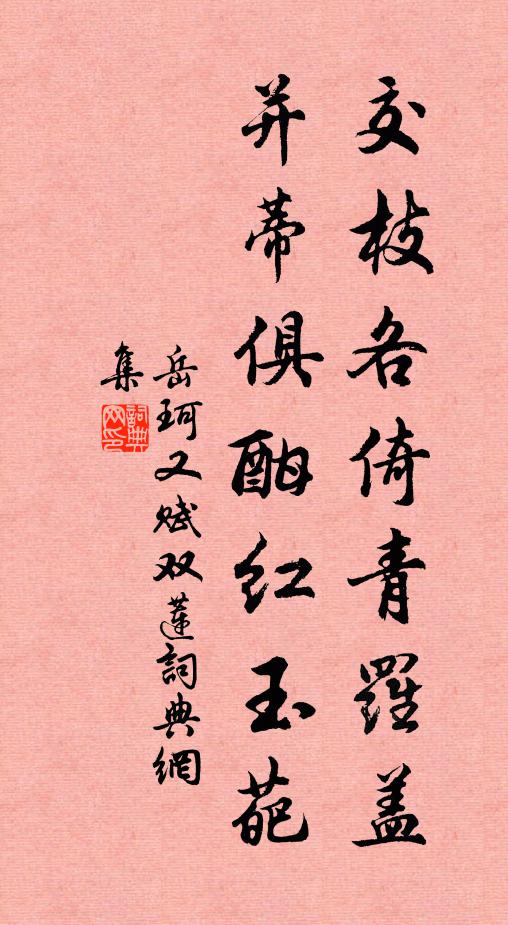 交枝各倚青羅盖
并蒂俱酣红玉葩
岳珂又赋双蓮詞典網
集
詞典
网印